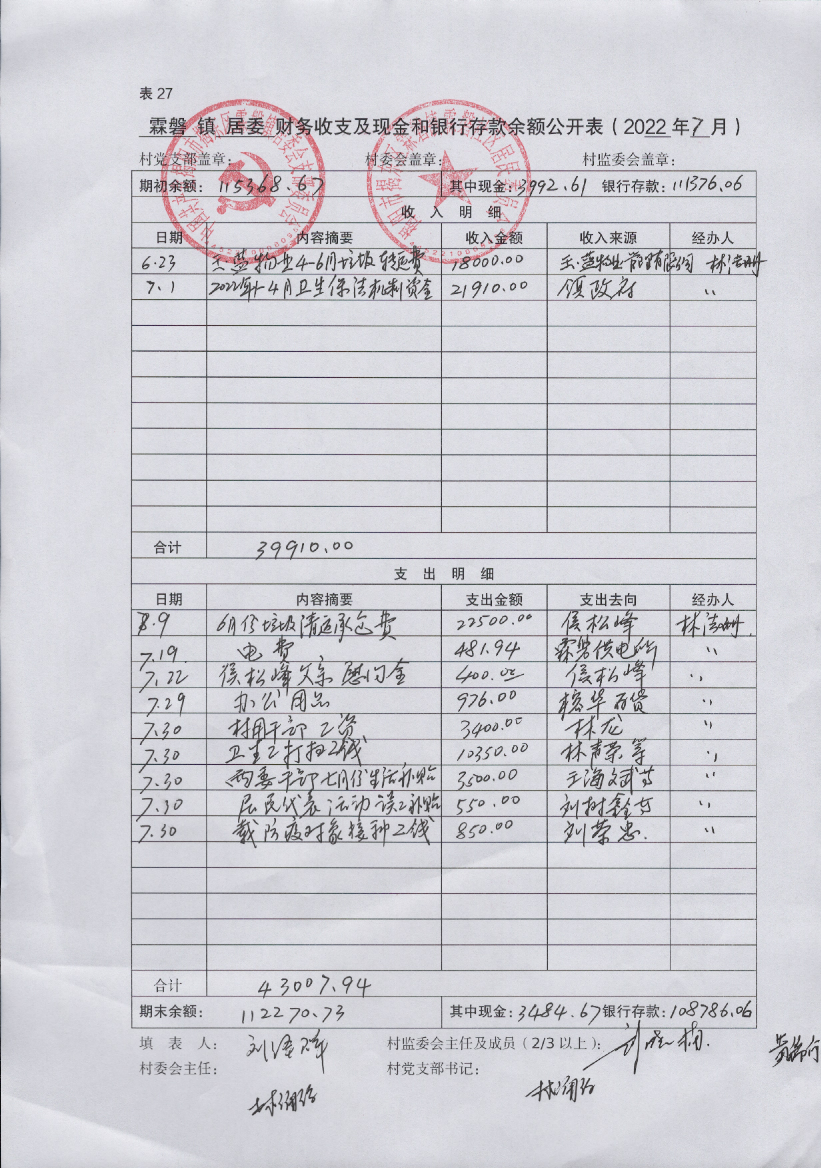 表 27
霖磐 镇 居委 财务收支及现金和银行存款余额公开表（2022 年 7 月）
村党支部盖章： 村委会盖章： 村监委会盖章：
期初余额： 115368.67 其中现金：3992.61 银行存款：111376.06
收 入 明 细
日期 内容摘要 收入金额 收入来源 经办人
6.23 玉蓝物业4-6月垃圾转运费 18000.00 玉蓝物业管理有限公司
7.1 2022年1-4月卫生保洁机制资金 21910.00 镇政府 〃
合计 39910.00
支 出 明 细
日期 内容摘要 支出金额 支出去向 经办人
7.9 6月份垃圾清运承包费 22500.00 侯松峰
7.19 电费 481.94 霖磐供电所 〃
7.22 侯松峰父亲慰问金 400.00 侯松峰 〃
7.29 办公用品 976.00 百货 〃
7.30 村用干部工资 3400.00 林龙 〃
7.30 卫生工打扫工钱 10350.00 林声荣等 〃
7.30 两委干部七月份生活补贴 3500.00 王海文 〃
7.30 居民代表活动误工补贴 550.00 刘树 〃
7.30 载防疫对象接种工钱 850.00 刘荣忠. 〃
合计 43007.94
期末余额： 112270.73 其中现金：3484.67 银行存款：108786.06
填 表 人： 村监委会主任及成员（2/3 以上）：
村委会主任： 村党支部书记：